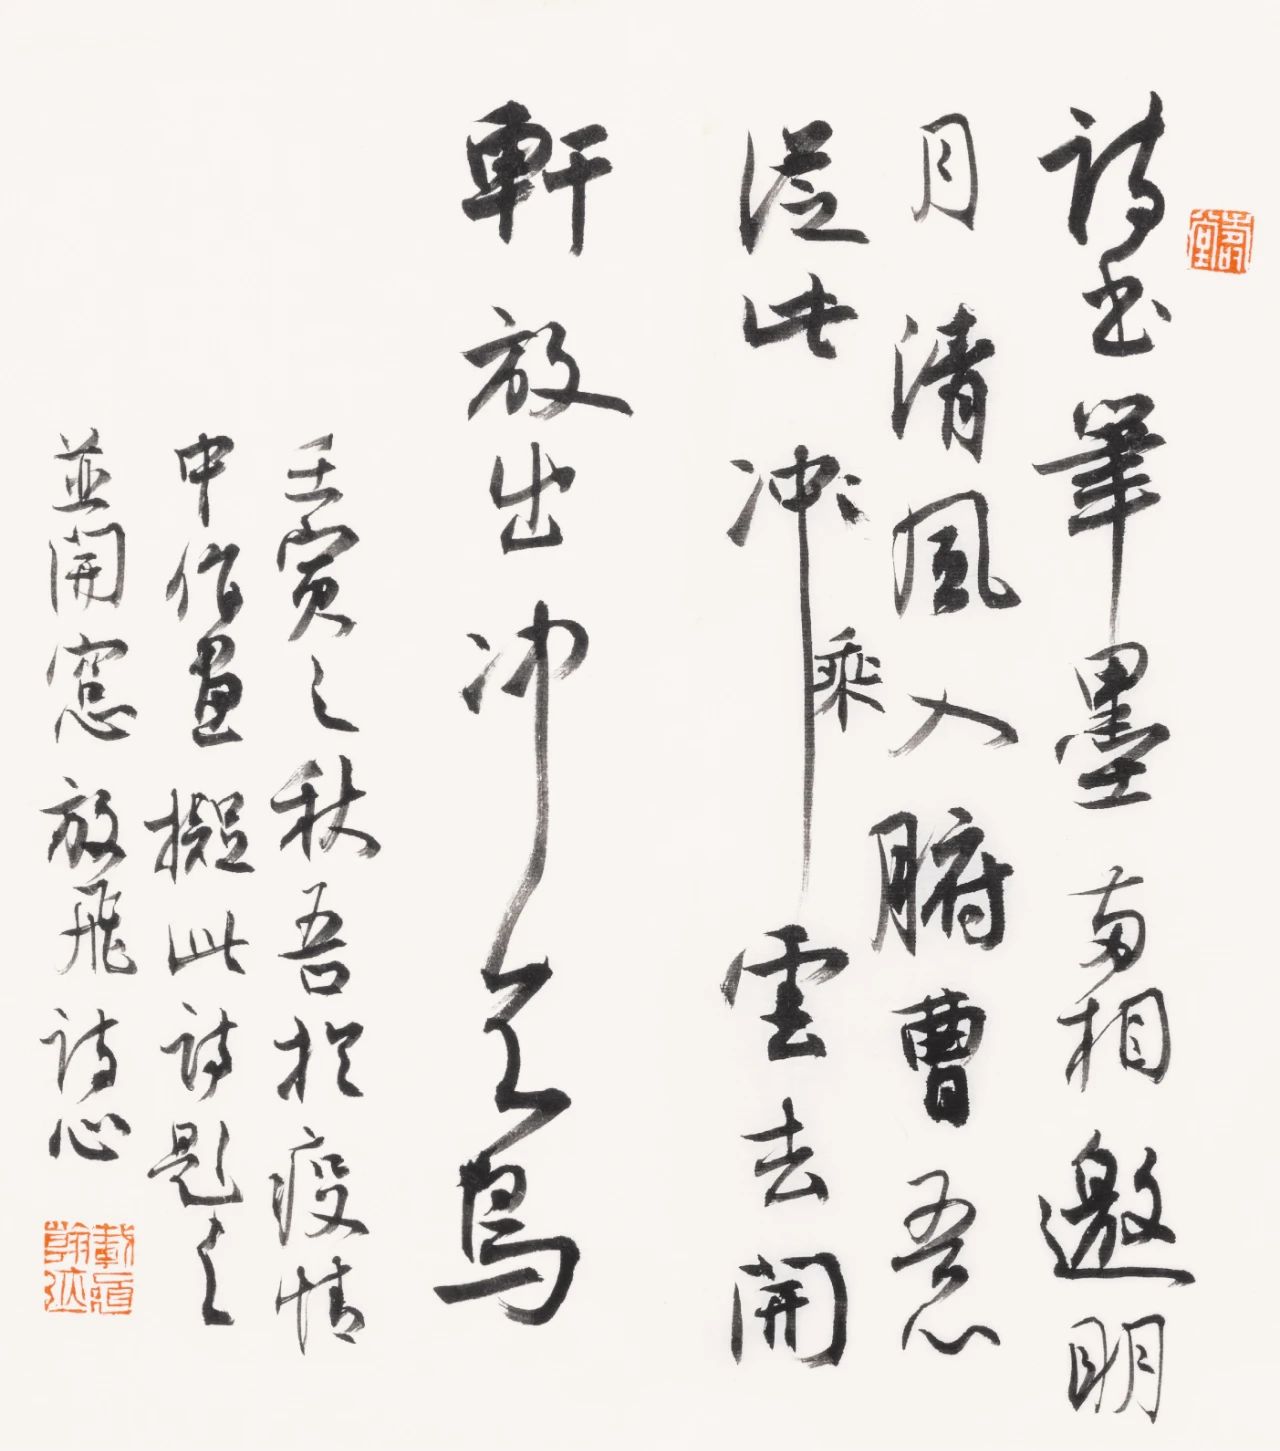 詩书筆墨两相邀明
月清風入腑曹吾心
從此冲乘雲去開
軒放出冲天鳥
壬寅之秋吾於疫情
中作畫擬此詩題之
並開窓放飛詩心